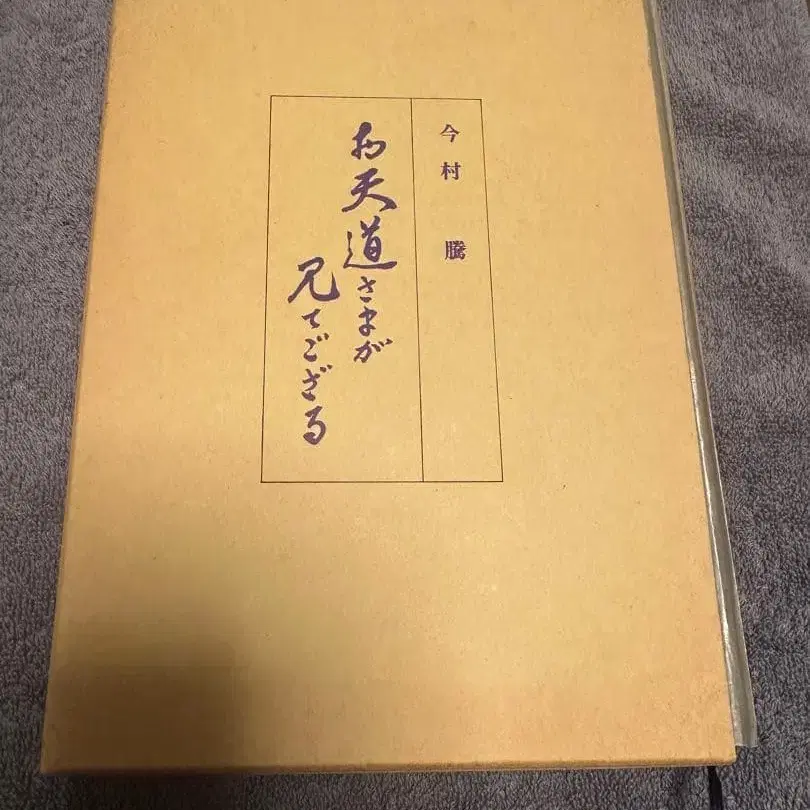 今村 騰
お天道さまが
見てござる